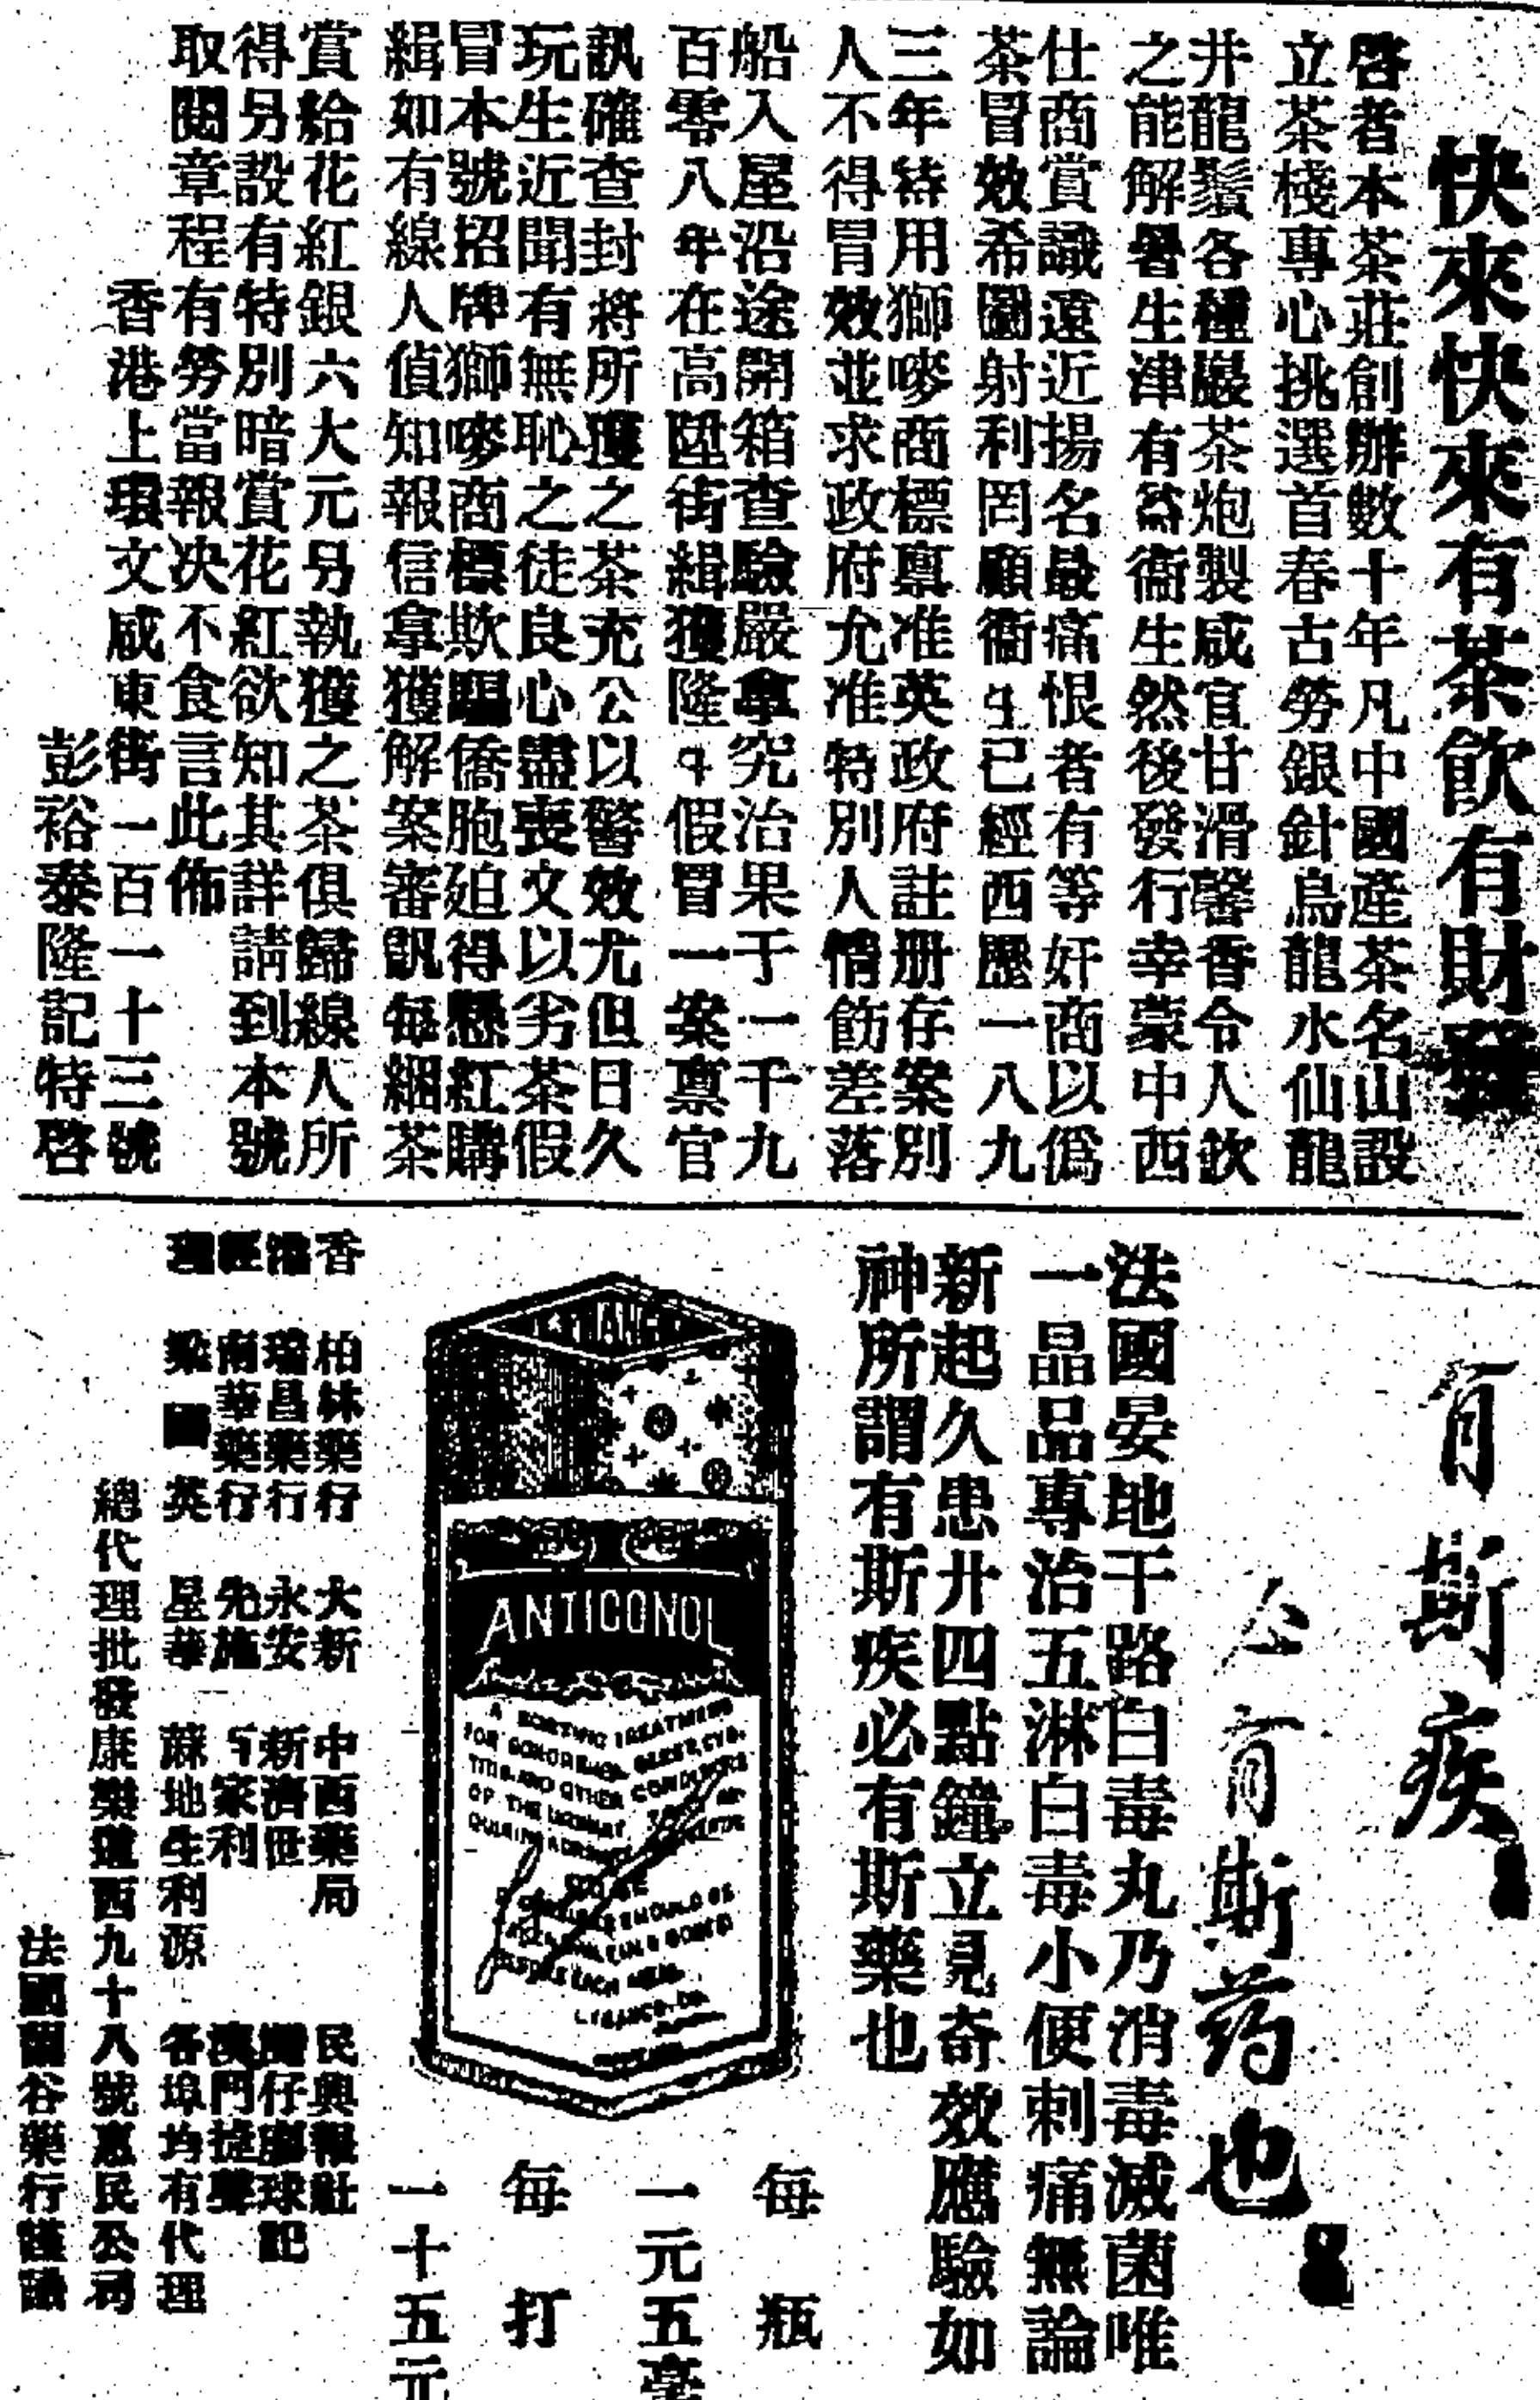 快來快來有茶飲有財發
啓者本茶莊創辦數十年凡中國產茶名山設
立茶棧專心挑選首春古勞銀針烏龍水仙龍
井龍鬚各種巖茶炮製咸宜甘滑馨香令人飲
之能解暑生津有益衞生然後發行幸蒙中西
仕商賞識遠近揚名最痛恨者有等奸商以僞
茶冒效希圖射利罔顧衞生已經西歷一八九
三年將用獅嘜商標禀准英政府註册存案別
人不得冒效並求政府允准特別人情飭差落
船入屋沿途開箱查驗嚴拿究治果于一千九
百零八年在高陞街緝獲隆千假冒一案禀官
訊確查封將所獲之茶充公以警效尤但日久
玩生近聞有無恥之徒良心盡喪又以劣茶假
冒本號招牌獅嘜商標欺騙僑胞廹得懸紅購
緝如有線人偵知報信拿獲解案審訊每綑茶
賞給花紅銀六大元另執獲之茶俱歸線人所
得另設有特別暗賞花紅欲知其詳請到本號
取閱章程有勞當報决不食言此佈
香港上環文咸東街一百一十三號
彭裕泰隆記特啓
有斯疾
必有斯药也
法國晏地干路白毒丸乃消毒滅菌唯
一晶品專治五淋白毒小便刺痛無論
新起久患廿四點鐘立見奇效應驗如
神所謂有斯疾必有斯藥也
ANTIGONOL
每瓶
一元五毫
每打
一十五元
香港經理
柏林藥行 大新 中西藥局 民興報社
瑞昌藥行 永安 新濟世
南華藥行 先施
梁國英 星華 蔴地生利源 各埠均有代理
總代理批發康樂道西九十八號惠民公司
法國蘭谷藥行謹識